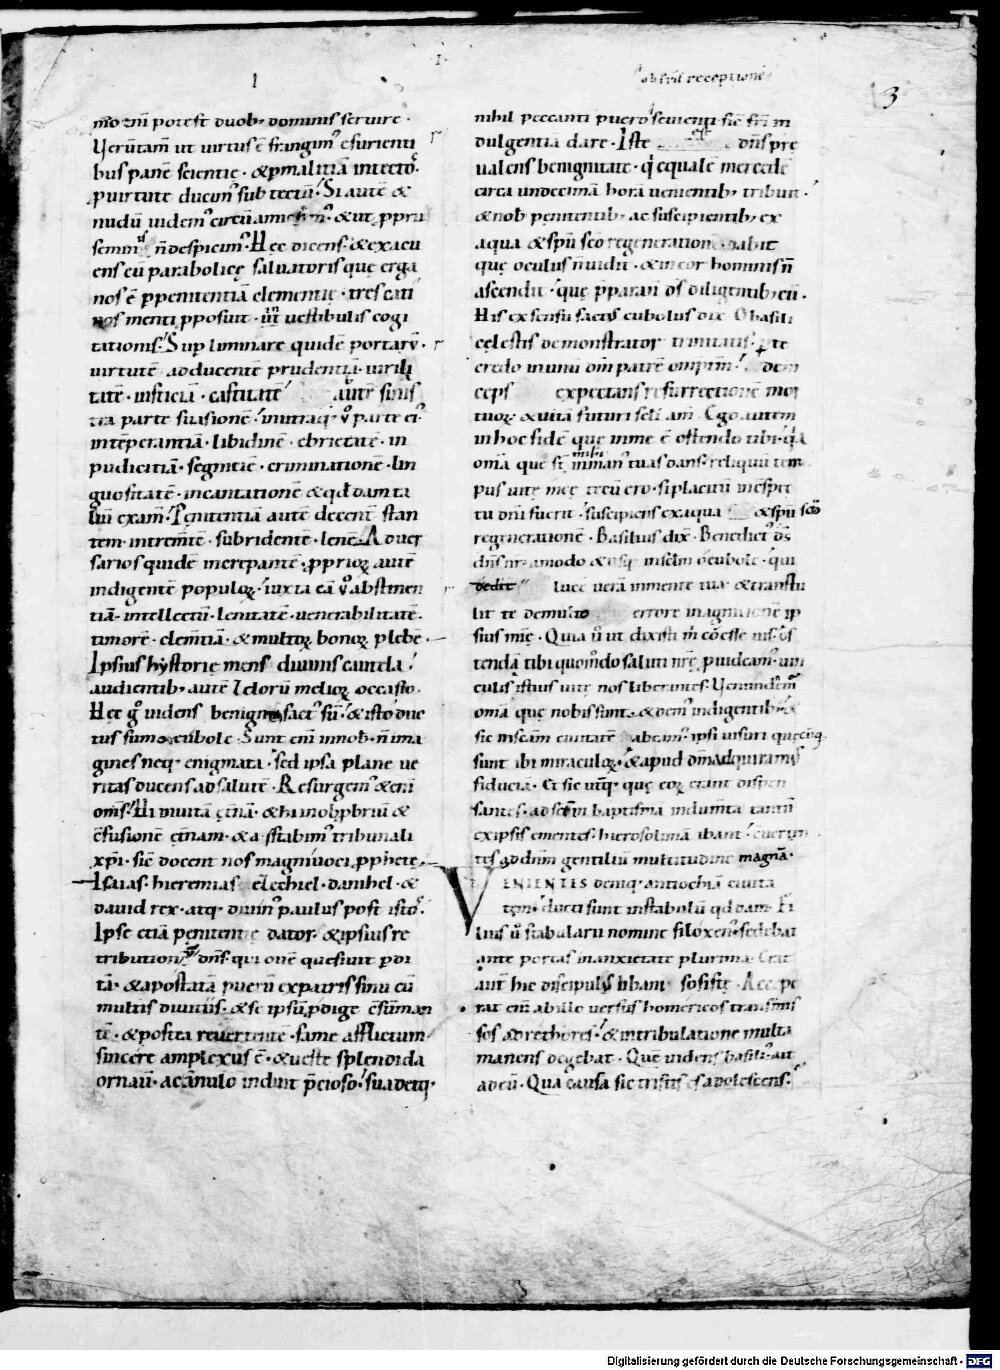 ob filii receptione
3
mo enī potest duob; dominis servire ·
Verūtam̄ ut virtus ē frangim᷒ esurienti
bus panē scientię · & p malitiā intectoꝰ
p virtute ducim᷒ sub tectū · Si autē &
nudū videm᷒ circū
semin n̄ despicim᷒ · Hęc dicens · & exacu
ens cū parabolicę salvatoris quę erga
nos ē p penitentiā clementię · tres cati
nos menti pposuit · in vestibulis cogi
tationis · Sup liminare quidē portarū ·
virtutē adducentē prudentiā · virili
tatē · iusticiā · castitatē autē sinis
tra parte suasionē
intēperantiā · libidinē · ebrietatē · in
pudicitiā · segnitiē · criminationē · lin
guositatē · incantationē & qd̄dam ta
liū exam̄ · Penitentiā autē decent̄ stan
tem · subridentē · lenē · Adver
sarios quidē increpantē · pprioꝝ autē
indigentē populoꝝ · iuxta eā abstinen
tiā · intellectū · lenitatē · venerabilitatē ·
timorē · clem̄tiā · & multoꝝ bonoꝝ plebē ·
Ipsius hystorię mens divinis cautela ·
audientib; autē meliorꝝ occasio ·
Hęc g° videns benign᷒ fact᷒ sū · & isto duc
tus sum o cubole · Sunt enī in nob · n̄ ima
gines neq; enigmata · sed ipsa plane ve
ritas ducens ad salutē · Resurgem᷒ & enī
om̄s · Hi in vitā ęt̄nā · & hi in obp̄briū &
c̄fusionē ęt̄nam · & astabim᷒ tribunali
xp̄i · sic docent nos magnivoci pphetę ·
Isaias · hieremias ezechiel · danihel · &
david rex · atq; divin᷒ paulus post istoꝰ
Ipse etiā penitentię dator · & ipsius re
tribution dn̄s · qui ovē quesivit pdi
tā · & apostatā puerū ex patris sinu cū
multis divitiis · & se ipsū pdige c̄suman
tē · & postea revertentē · fame afflictum
sincere amplexus ē · & veste splendida
ornavit · ac ānulo induit p̄cioso · suadetq;
nihil peccanti puero sevienti sic fr̄i in
dulgentiā dare · Iste dn̄s pre
valens benignitate · q̄ equalē mercedē
circa undecimā horā venientib; tribuit ·
& nob penitentib; ac suscipientib; ex
aqua & sp̄u sc̄o regenerationē dabit
quę oculus n̄ vidit · & in cor hominis n̄
ascendit · quę p̄paravit ds̄ diligentib; eū ·
His ex sensu factis cubolus dix · O basili
cęlestis demonstrator trinitatis · p te
credo in unū dm̄ patrē om̄ip̄m · dein
ceps expectans resurrectionē mor
tuoꝝ & vitā futuri sc̄li am̄ · Ego autem
in hoc fidē quę in me ē ostendo tibi · q̄a
om̄ia quę st̄ mihi in man᷒ tuas dans · reliquū tem
pus vitę meę tecū ero · si placitū in c̄spec
tu dn̄i fuerit · suscipiens ex aqua & sp̄u sc̄o
regenerationē · Basilius dix · Benedict᷒ ds̄
dn̄s nr̄ amodo & usq; in sc̄lm o cubole · qui
dedit lucē verā in mente tua · & transtu
lit te de multo errore in agnitionē ip
sius mīę · Quia v̊ ut dixisti
tenda tibi quomodo saluti nr̄ę pvideam᷒ · vin
culis istius vitę nos liberantes · Venundem᷒
om̄ia quę nobis sunt · & dem᷒ indigentib; &
sic in sc̄am civitatē abeam᷒ · ipsi visuri quęcūq.
sunt ibi miraculoꝝ · & apud dm̄ adquiramus
fiduciā · Et sic utiq; quę eoꝝ erant dispen
santes · ad sc̄m baptisma indum̄ta tantū
ex ipsis ementes · hierosolimā ibant · c̄vertin
tes ad dn̄m gentiliū multitudinē magnā ·
VENIENTES deniq; antiochiā civita
tem · ducti sunt in stabolū qd̄dam · Fi
lius v̊ stabularii nomine filoxen᷒ · sedebat
ante portas in anxietate plurima · Erat
aut̄ hic discipulus libanii sofistę · Accepe
rat enī ab illo versus homericos transmis
sos ad rethores · & in tribulatione multa
manens degebat · Quē videns basili᷒ ait
ad eū · Qua causa sic tristis es adolescens ·
Digitalisierung gefördert durch die Deutsche Forschungsgemeinschaft - DFG